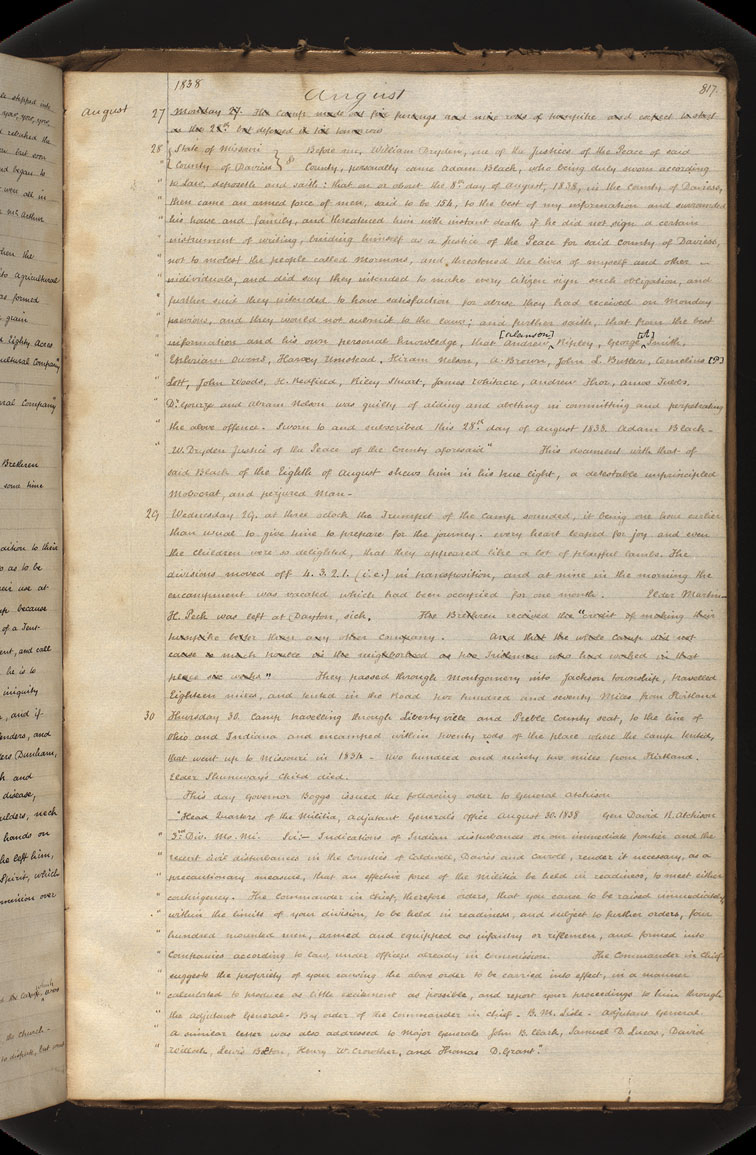 1838 August 817.
August 27 Monday 27. The camp made out five furlongs and nine rods of turnpike and expect to start
on the 28th but defered it till tomorrow
28 State of Missouri } ss Before me, William Dryden, one of the Justices of the Peace of said
" County of Daviess County, personally came Adam Black, who being duly sworn according
" to law, deposeth and saith: that on or about the 8th day of August, 1838, in the County of Daviess,
" there came an armed force of men, said to be 154, to the best of my information and surrounded
" his house and family, and threatened him with instant death if he did not sign a certain
" instrument of writing, binding himself as a Justice of the Peace for said County of Daviess,
" not to molest the people called Mormons, and threatened the lives of myself and other
" individuals, and did say they intended to make every citizen sign such obligation, and
" further said they intended to have satisfaction for abuse they had received on Monday
" previous, and they would not submit to the laws; and further saith, that from the best
[Alanson] [A]
" information and his own personal knowledge, that Andrew Ripley, George Smith,
" Ephraim Owens, Harvey Umstead, Hiram Nelson, A. Brown, John L. Butler, Cornelius [P]
" Lott, John Woods, H. Redfield, Riley Stuart, James Whitacre, Andrew Thor, Amos Tubbs,
" Dr. Gourze and Abram Nelson was guilty of aiding and abetting in committing and perpetrating
" the above offence. Sworn to and subscribed this 28th day of August 1838. Adam Black -
" W. Dryden Justice of the Peace of the County aforesaid" This document with that of
said Black of the Eighth of August shews him in his true light, a detestable unprincipled
Mobocrat, and perjured Man -
29 Wednesday 29. at three oclock the Trumpet of the Camp sounded, it being one hour earlier
than usual to give time to prepare for the journey. every heart leaped for joy. and even
the children were so delighted, that they appeared like a lot of playful lambs. The
divisions moved off 4. 3. 2. 1. (i.e.) in transposition, and at nine in the morning the
encampment was vacated which had been occupied for one month. Elder Martin
H. Peck was left at Dayton, sick. The Brethren received the "credit of making their
turnpike better than any other company. And that the whole camp did not
cause as much trouble in the neighborhood as ten Irishmen who had worked in that
place six weeks" They passed through Montgomery into Jackson township, travelled
Eighteen miles, and tented in the Road two hundred and seventy Miles from Kirtland
30 Thursday 30. Camp travelling through Libertyville and Preble County seat, to the line of
Ohio and Indiana and encamped within twenty rods of the place where the camp tented,
that went up to Missouri in 1834 - two hundred and ninety two miles from Kirtland.
Elder Shumway's child died.
This day Governor Boggs issued the following order to General Atchison
"Head Quarters of the Militia, Adjutant General's Office August 30. 1838 Gen David R. Atchison
" 3rd Div. Mo. Mi. Sir:- Indications of Indian disturbances on our immediate frontier and the
" recent civil disturbances in the Counties of Caldwell, Davies and Carrol, render it necessary, as a
" precautionary measure, that an effective force of the Militia be held in readiness, to meet either
" contingency. The Commander in Chief, therefore orders, that you cause to be raised immediately
" within the limits of your division, to be held in readiness, and subject to further orders, four
" hundred mounted men, armed and equipped as infantry or riflemen, and formed into
" Companies according to law, under officers already in commission. The Commander in Chief
" suggests the propriety of your causing the above order to be carried into effect, in a manner
" calculated to produce as little excitement as possible, and report your proceedings to him through
" the adjutant General. By order of the Commander in chief. B. M. Lisle. Adjutant General.
" A similar letter was also addressed to Major Generals John B. Clark, Samuel D. Lucas, David
" Willock, Lewis Bolton, Henry W. Crowther, and Thomas D. Grant."